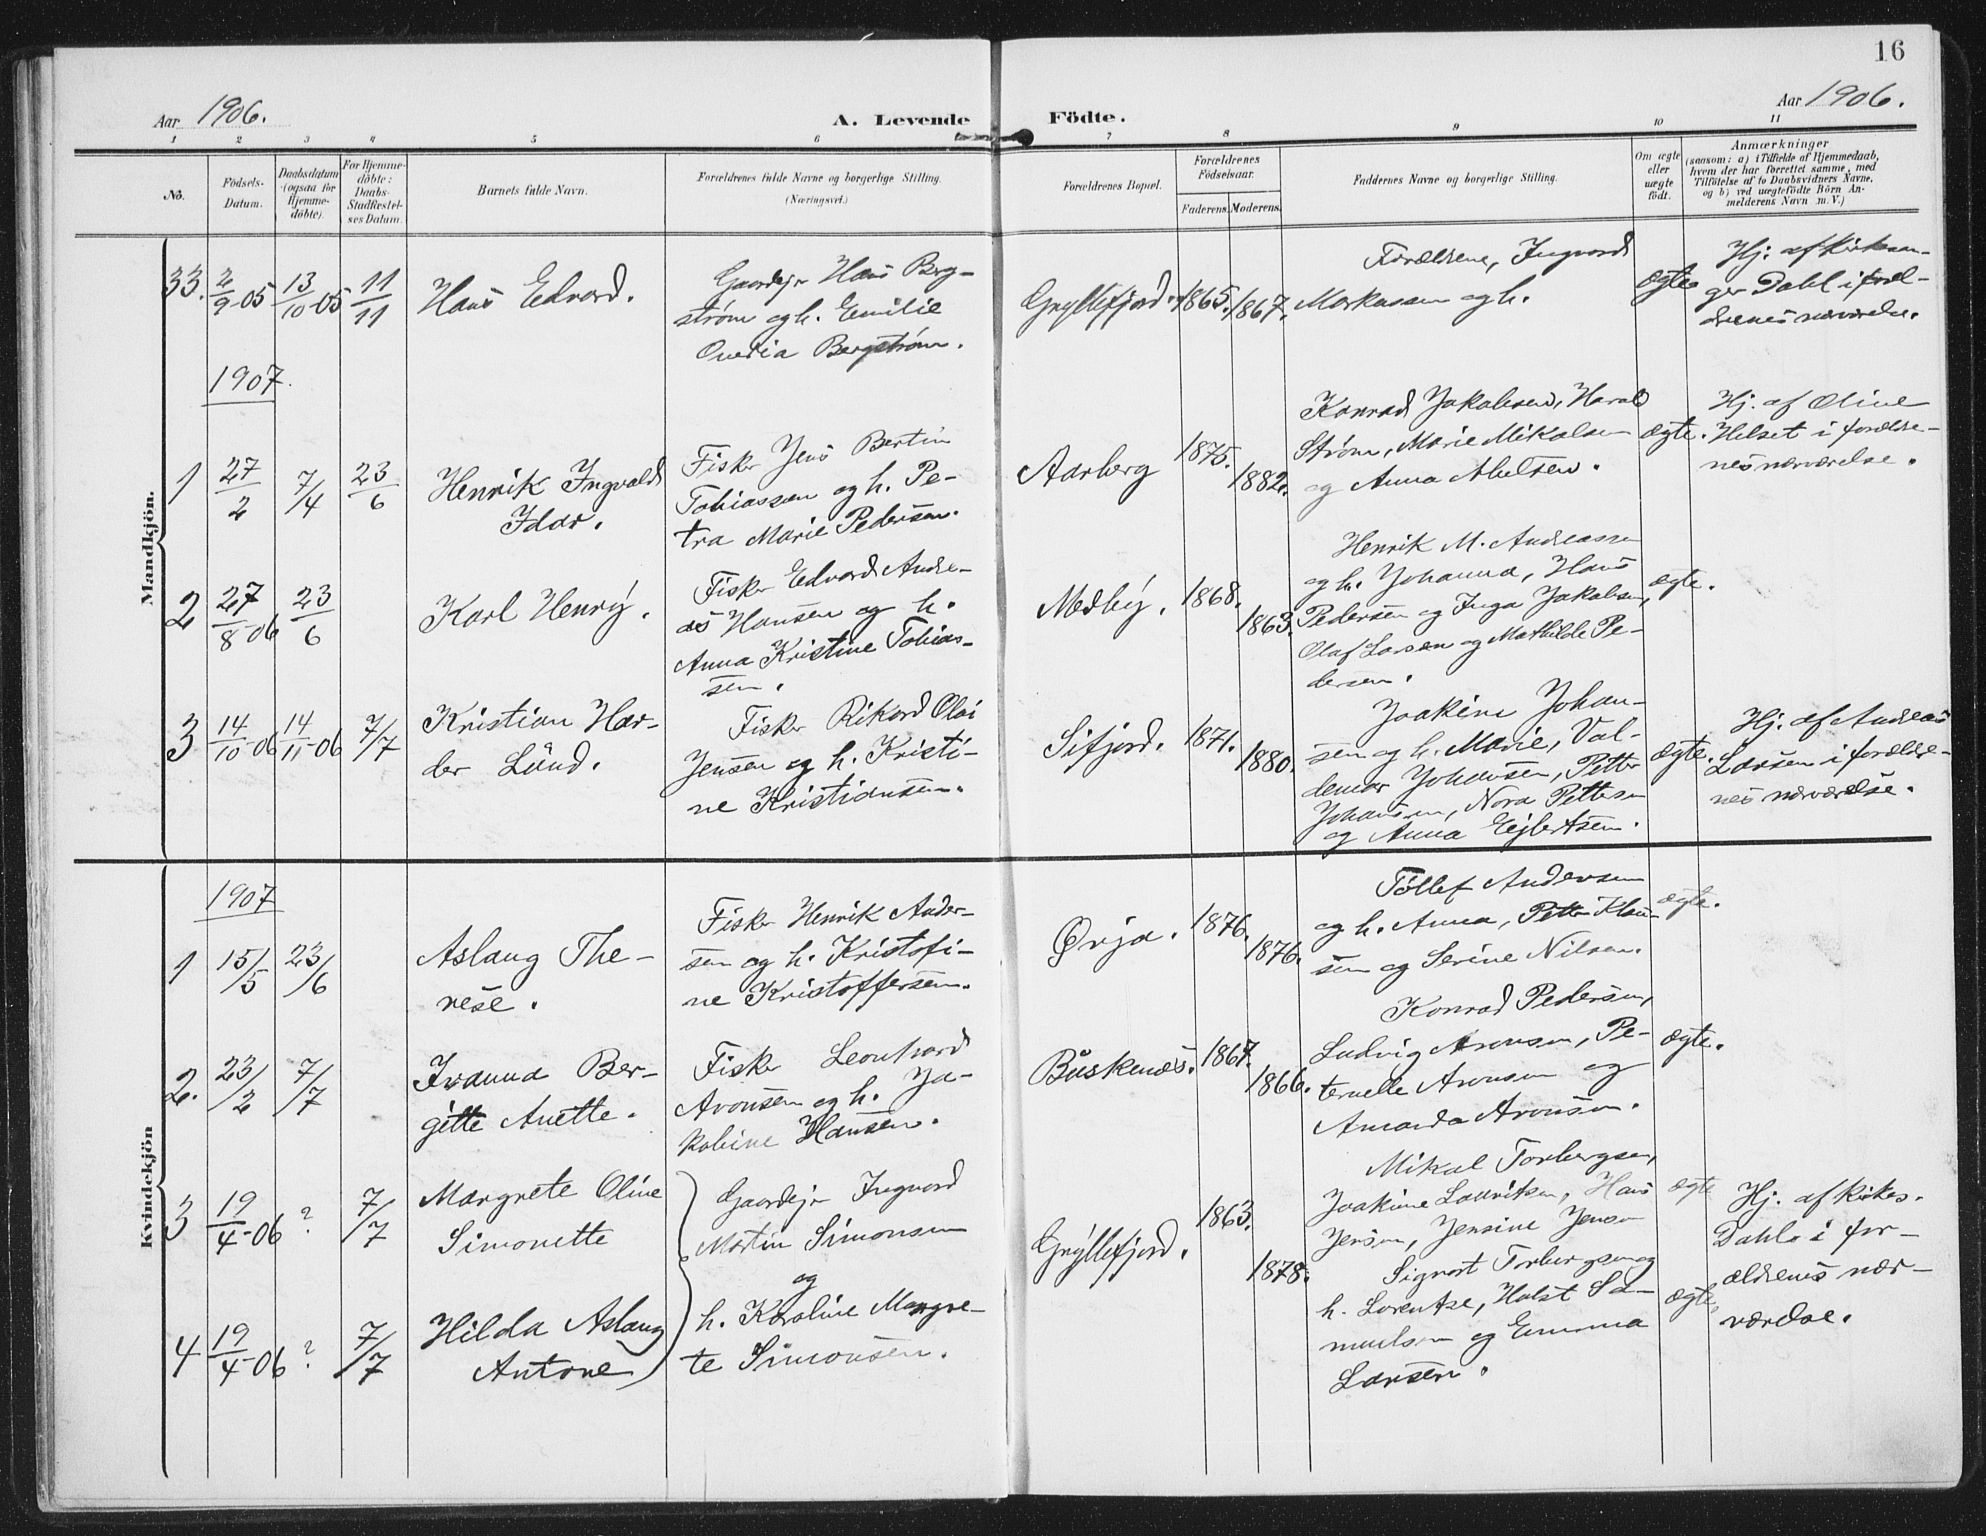 16
Aar 1906.
A. Levende Födte.
Aar 1906.
1 2 3 4 5 6 7 8 9 10 11
No.
Födsels-
Datum.
Daabsdatum
(ogsaa for
Hjemme-
døbte).
For Hjemme-
døbte:
Daabs-
Stadfæstel-
ses Datum.
Barnets fulde Navn.
Forældrenes fulde Navne og borgerlige Stilling.
(Næringsvei.)
Forældrenes Bopæl.
Forældrenes
Födselsaar.
Faderens. Moderens.
Faddernes Navne og borgerlige Stilling.
Om ægte
eller
uægte
født.
Anmærkninger
(saasom: a) i Tilfælde af Hjemmedaab,
hvem der har forrettet samme, med
Tilföielse af to Daabsvidners Navne.
og b) ved uægtefödte Börn An-
melderens Navn m. V.)
Mandkjön.
33. 2/9-05 13/10-05 11/11
Hans Edvard.
Gaardejr Hans Berg-
strøm og h. Emilie
Ovedia Bergstrøm.
Gryllefjord. 1865. 1867.
Forældrene, Ingvard
Markussen og h.
ægte
Hj. af Kirkesan-
ger Dahl i foræl-
drenes nærværelse.
1907.
1 27/2 7/4 23/6
Henrik Ingvald
Idar.
Fisker Jens Bertin
Tobiassen og h. Pe-
tra Marie Pedersen.
Aarberg 1875. 1882.
Konrad Jakobsen, Harald
Strøm, Marie Mikalsen
og Anna Abelsen.
ægte.
Hj. af Oline
Helset i foreldre-
nes nærværelse.
2 27/8-06 23/6
Karl Henry.
Fisker Edvard Andre-
as Hansen og h.
Anna Kristine Tobias-
sen.
Medby. 1868. 1863.
Henrik M. Andreassen
og h. Johanna, Hans
Pedersen og Inga Jakobsen,
Olaf Larsen og Mathilde Pe-
dersen.
ægte.
3 14/10-06 14/11-06 7/7
Kristian Har-
der Lund.
Fisker Rikard Olai
Jensen og h. Kristi-
ne Kristiansen.
Sifjord. 1871. 1880.
Joakim Johan-
sen og h. Marie, Val-
demar Johansen, Petter
Johansen, Nora Pettersen
og Anna Ejbertsen.
ægte.
Hj. af Andreas
Larsen i forældre-
nes nærværelse.
Kvindekjön
1907
1 15/5 23/6
Aslaug The-
rese.
Fisker Henrik Ander-
sen og h. Kristofi-
ne Kristoffersen.
Ørja. 1876. 1876.
Tollef Andersen
og h. Anna, Petter Klau-
sen og Serine Nilsen.
ægte.
2. 23/2 7/7
Ivanna Ber-
gitte Anette.
Fisker Leonhard
Aronsen og h. Ja-
kobine Hansen.
Buskenes. 1867. 1866.
Konrad Pedersen,
Ludvig Aronsen, Pe-
ternelle Aronsen og
Amanda Aronsen.
ægte.
3 19/4-06 ? 7/7
Margrete Oline
Simonette
Gaardejr Ingvard
Martin Simonsen
og
h. Karoline Margre-
te Simonsen.
Gryllefjord. 1863. 1878.
Mikal Torbergsen,
Joakine Lauritsen, Hans
Jensen, Jensine Jensen
ægte
Hj. af Kirkes.
Dahl i for-
ældrenes nær-
værelse.
4 19/4-06 ? 7/7
Hilda Aslaug
Antone
Sigvart Torbergsen og
h. Lorentse, Halst Sa-
muelsen og Emma
Larsen.
ægte